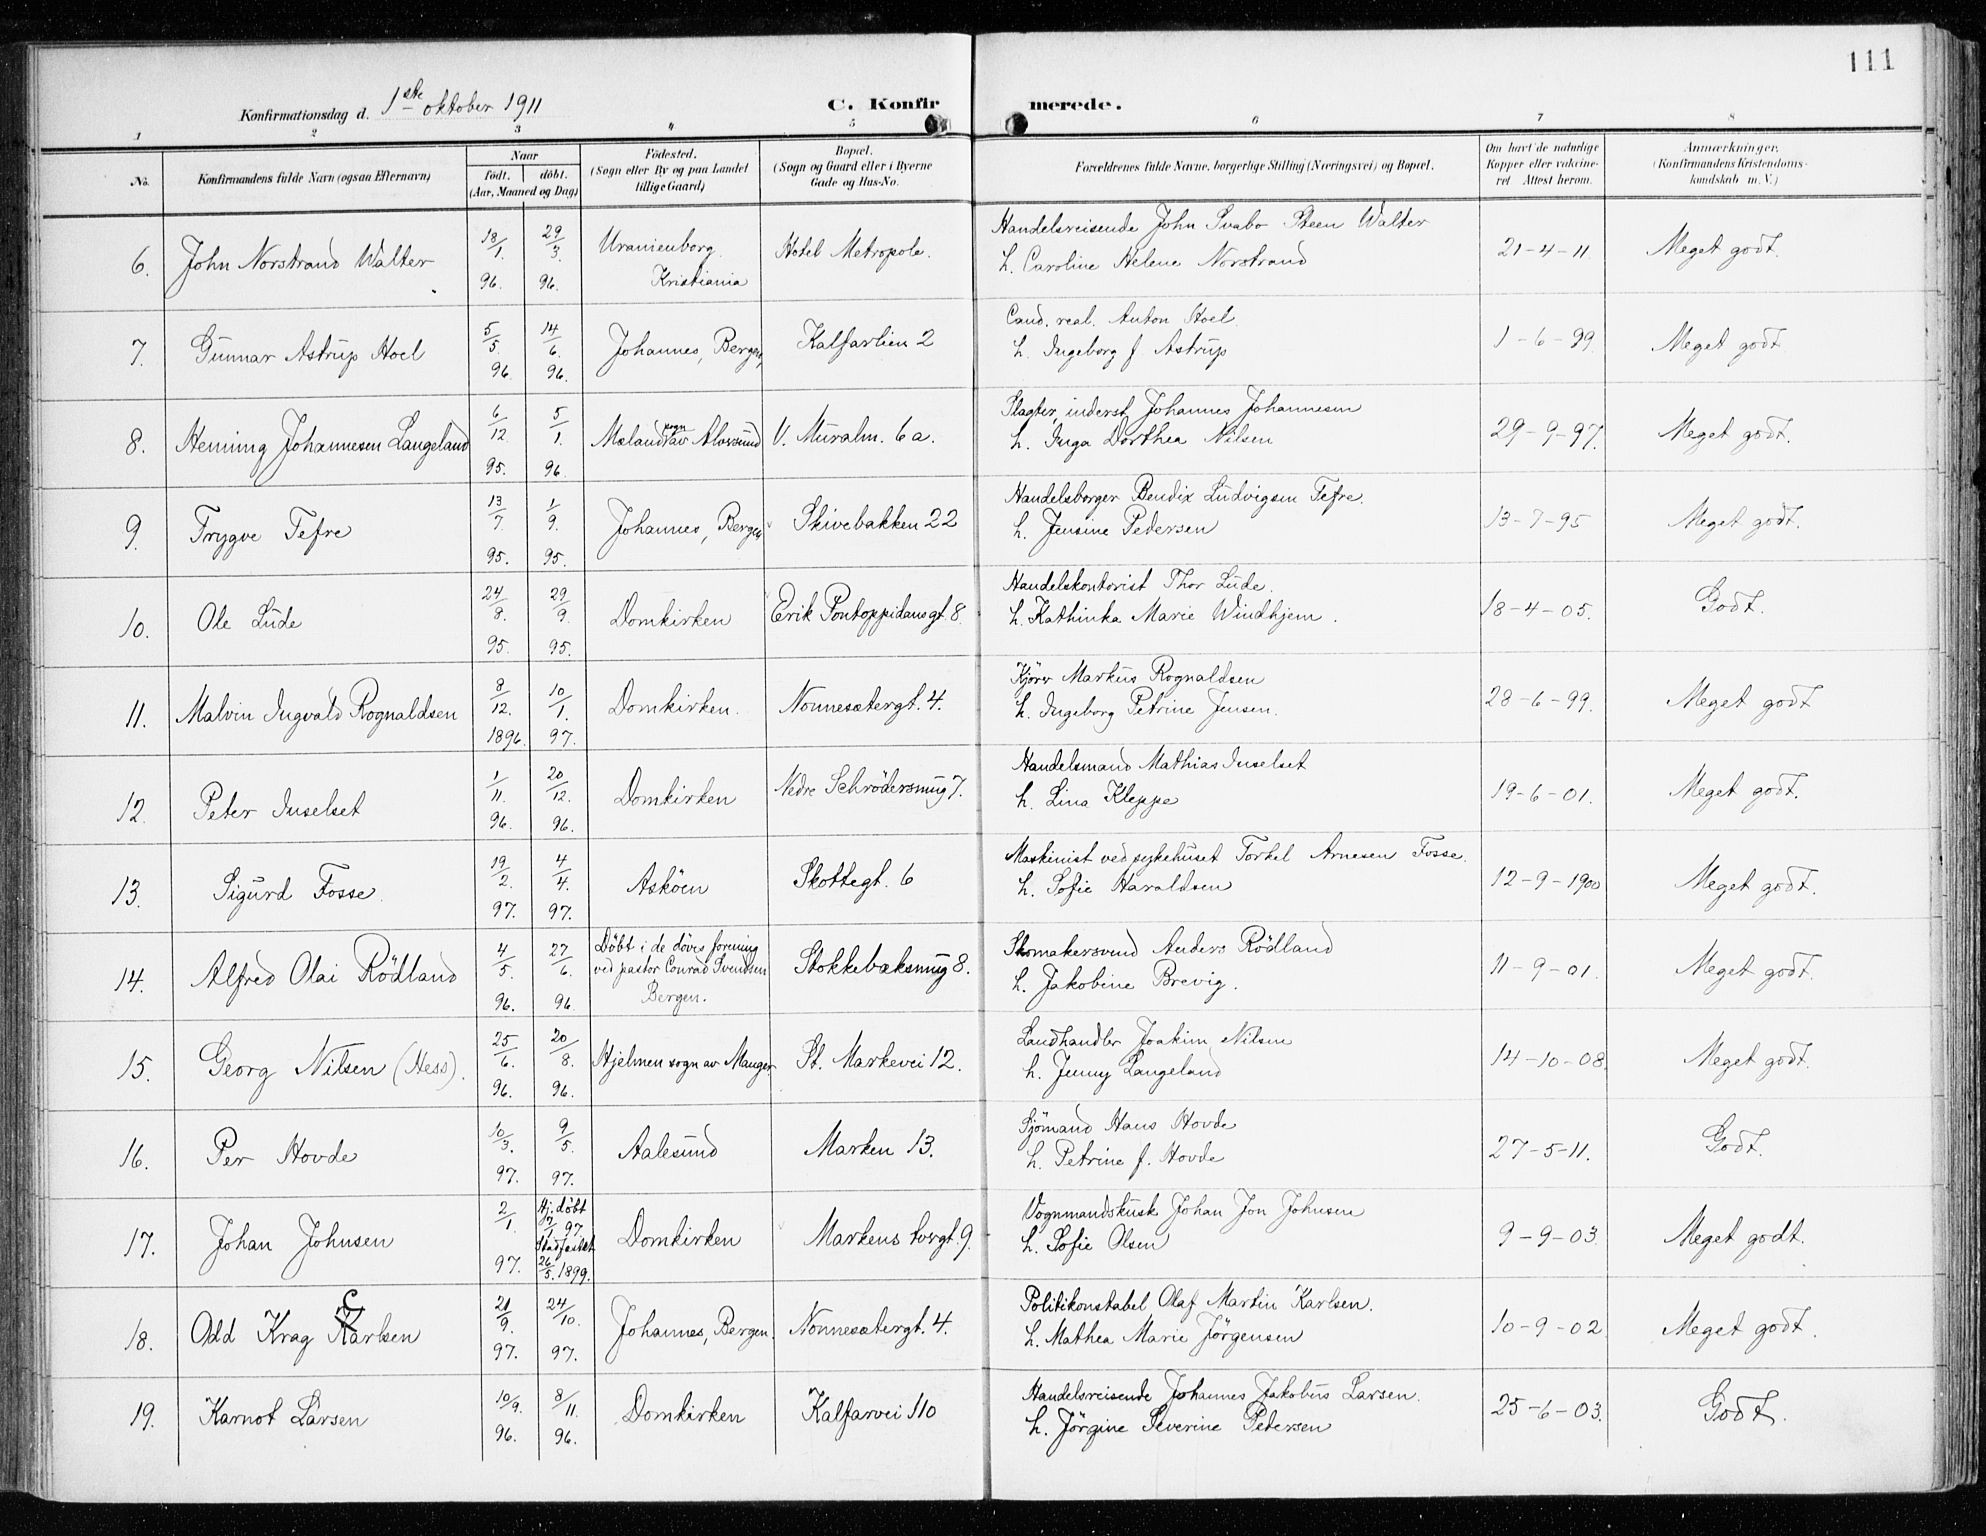 111
Konfirmationsdag d. 1ste oktober 1911
C. Konfirmerede.
1 2 3 4 5 6 7 8
No.
Konfirmandens fulde Navn (ogsaa Efternavn)
Naar
født. døbt.
(Aar, Maaned og Dag)
Fødested.
(Sogn eller By og paa Landet
tillige Gaard)
Bopæl.
(Sogn og Gaard eller i Byerne
Gade og Hus-No.
Forældrenes fulde Navne, borgerlige Stilling (Næringsvei) og Bopæl.
Om havt de naturlige
Kopper eller vaccine-
ret Attest herom.
Anmærkninger.
(Konfirmandens Kristendoms-
kundskab m. V.)
6. John Norstrand Walter
18/1. 96. 29/3. 96.
Uranienborg.
Kristiania
Hotel Metropole.
Handelsreisende John Svabo Steen Walter
h. Caroline Helene Norstrand
21-4-11 Meget godt.
7. Gunnar Astrup Hoel
5/5. 96. 14/6. 96.
Johannes, Bergen,
Kalfarlien 2
Cand. real. Anton Hoel
h. Ingeborg f. Astrup
1-6-99. Meget godt
8. Henning Johannesen Langeland
6/12. 95. 5/1. 96
Mæland sogn av Alversund
V. Muralm. 6a.
Slagter, inderst Johannes Johannesen
h. Inga Dorthea Nilsen
29-9-97. Meget godt.
9. Trygve Tefre
13/7. 95. 1/9. 95.
Johannes, Bergen
Skivebakken 22
Handelsborger Bendix Ludvigsen Tefre.
h. Jensine Pedersen
13-7-95 Meget godt.
10. Ole Lude
24/8. 95. 29/9. 95.
Domkirken
Erik Pontoppidansgt. 8.
Handelskontorist Thor Lude.
h. Kathinka Marie Windhjem.
18-4-05. Godt.
11. Malvin Ingvald Rognaldsen
8/12. 1896. 10/1. 97.
Domkirken.
Nonnesætergt. 4.
Kjører Markus Rognaldsen
h. Ingeborg Petrine Jensen.
28-6-99. Meget godt
12. Peter Inselset
1/11. 96. 20/12. 96.
Domkirken
Nedre Schrödersmug 7.
Handelsmand Mathias Inselset
h. Lina Kleppe
19-6-01. Meget godt.
13. Sigurd Fosse.
19/2. 97. 4/4. 97.
Asköen
Skottegt. 6
Maskinist ved sykehuset Torkel Arnesen Fosse.
h. Sofie Haraldsen
12-9-1900 Meget godt.
14. Alfred Olai Rödland
4/5. 96. 27/6. 96
Döbt i de döves forening
ved pastor Conrad Svendsen
Bergen.
Stokkebæksmug 8.
Skomakersvend Anders Rödland
h. Jakobine Brevig.
11-9-01. Meget godt.
15. Georg Nilsen (Hess).
25/6. 96. 20/8. 96.
Hjelmen sogn av Manger
St. Markevei 12.
Landhandler Joakim Nilsen
h. Jenny Langeland
14-10-08. Meget godt.
16. Per Hovde
10/3. 97. 9/5. 97.
Aalesund
Marken 13.
Sjömand Hans Hovde
h. Petrine f. Hovde
27-5-11. Godt.
17. Johan Johnsen
2/1. 97. Hj. döbt
7/1 97
Stadfæstet
26/5. 1899.
Domkirken
Markens torvgt. 9.
Vognmandskusk Johan Jon Johnsen
h. Sofie Olsen
9-9-03. Meget godt.
18. Odd Krag C Karlsen
21/9. 97. 24/10. 97.
Johannes, Bergen.
Nonnesætergt. 4.
Politikonstabel Olaf Martin Karlsen.
h. Mathea Marie Jörgensen
10-9-02 Meget godt.
19. Karnot Larsen
10/9. 96. 8/11. 96.
Domkirken
Kalfarvei 110
Handelsreisende Johannes Jakobus Larsen.
h. Jörgine Severine Pedersen
25-6-03. Godt.